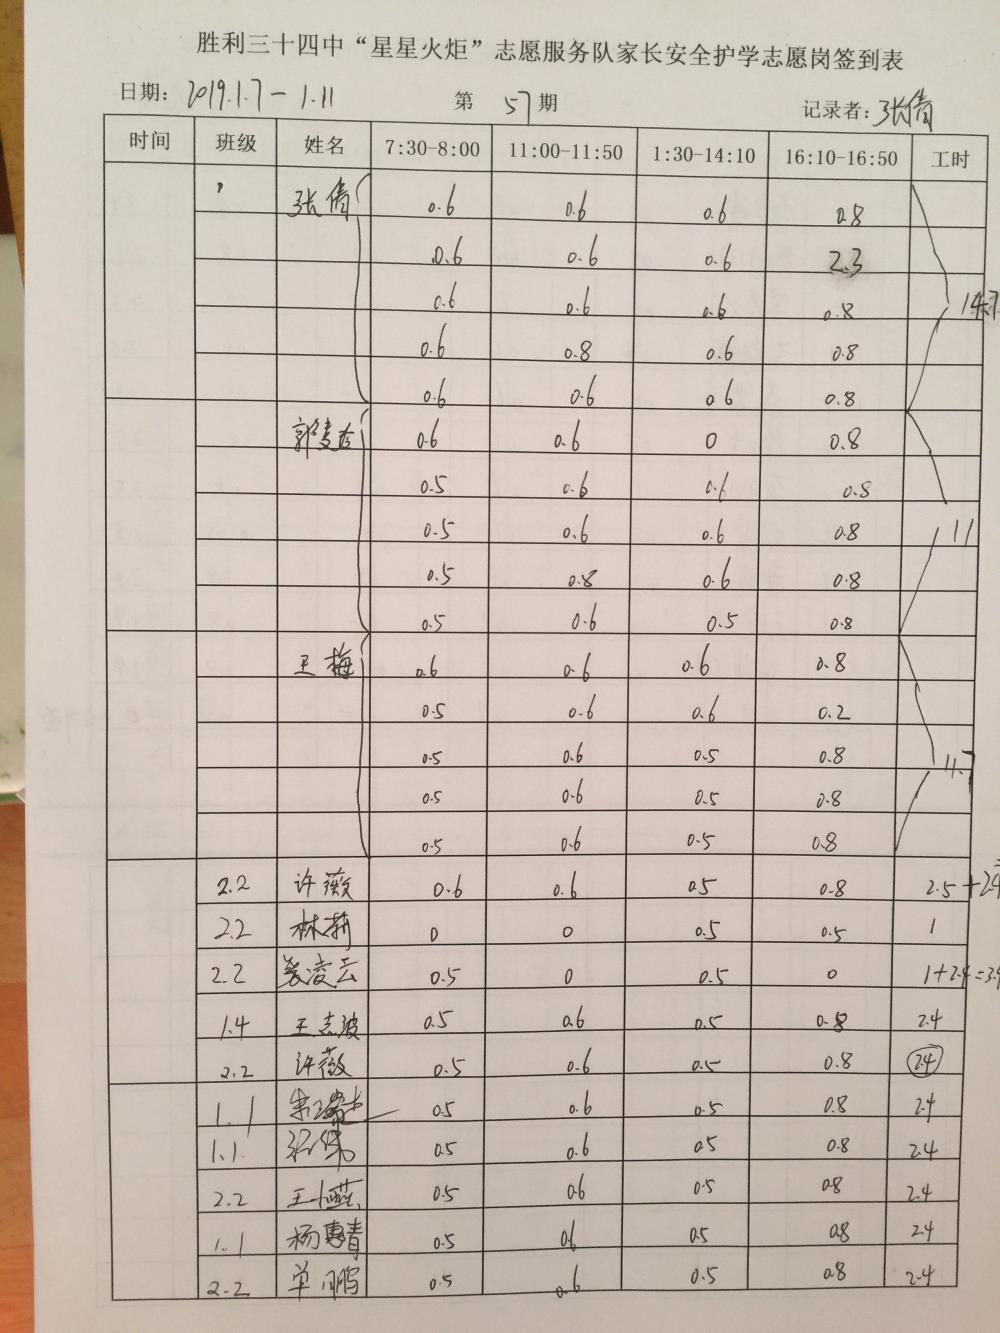 胜利三十四中“星星火炬”志愿服务队家长安全护学志愿岗签到表
日期: 2019.1.7-1.11 第 57 期 记录者: 张倩
时间 班级 姓名 7:30-8:00 11:00-11:50 1:30-14:10 16:10-16:50 工时
张倩 0.6 0.6 0.6 0.8
0.6 0.6 0.6 2.3
0.6 0.6 0.6 0.8
0.6 0.8 0.6 0.8
0.6 0.6 0.6 0.8
郭 0.6 0.6 0 0.8
0.5 0.6 0.6 0.8
0.5 0.6 0.6 0.8 11
0.5 0.8 0.6 0.8
0.5 0.6 0.5 0.8
王梅 0.6 0.6 0.6 0.8
0.5 0.6 0.6 0.2
0.5 0.6 0.5 0.8 11.7
0.5 0.6 0.5 0.8
0.5 0.6 0.5 0.8
2.2 许薇 0.6 0.6 0.5 0.8 2.5+2.4
2.2 林莉 0 0 0.5 0.5 1
2.2 凌云 0.5 0 0.5 0 1+2.4=3.4
1.4 王志波 0.5 0.6 0.5 0.8 2.4
2.2 许薇 0.5 0.6 0.5 0.8 2.4
1.1 0.5 0.6 0.5 0.8 2.4
1.1. 0.5 0.6 0.5 0.8 2.4
2.2 王小燕 0.5 0.6 0.5 0.8 2.4
1.1 杨惠青 0.5 0.6 0.5 0.8 2.4
2.2 单鹏 0.5 0.6 0.5 0.8 2.4